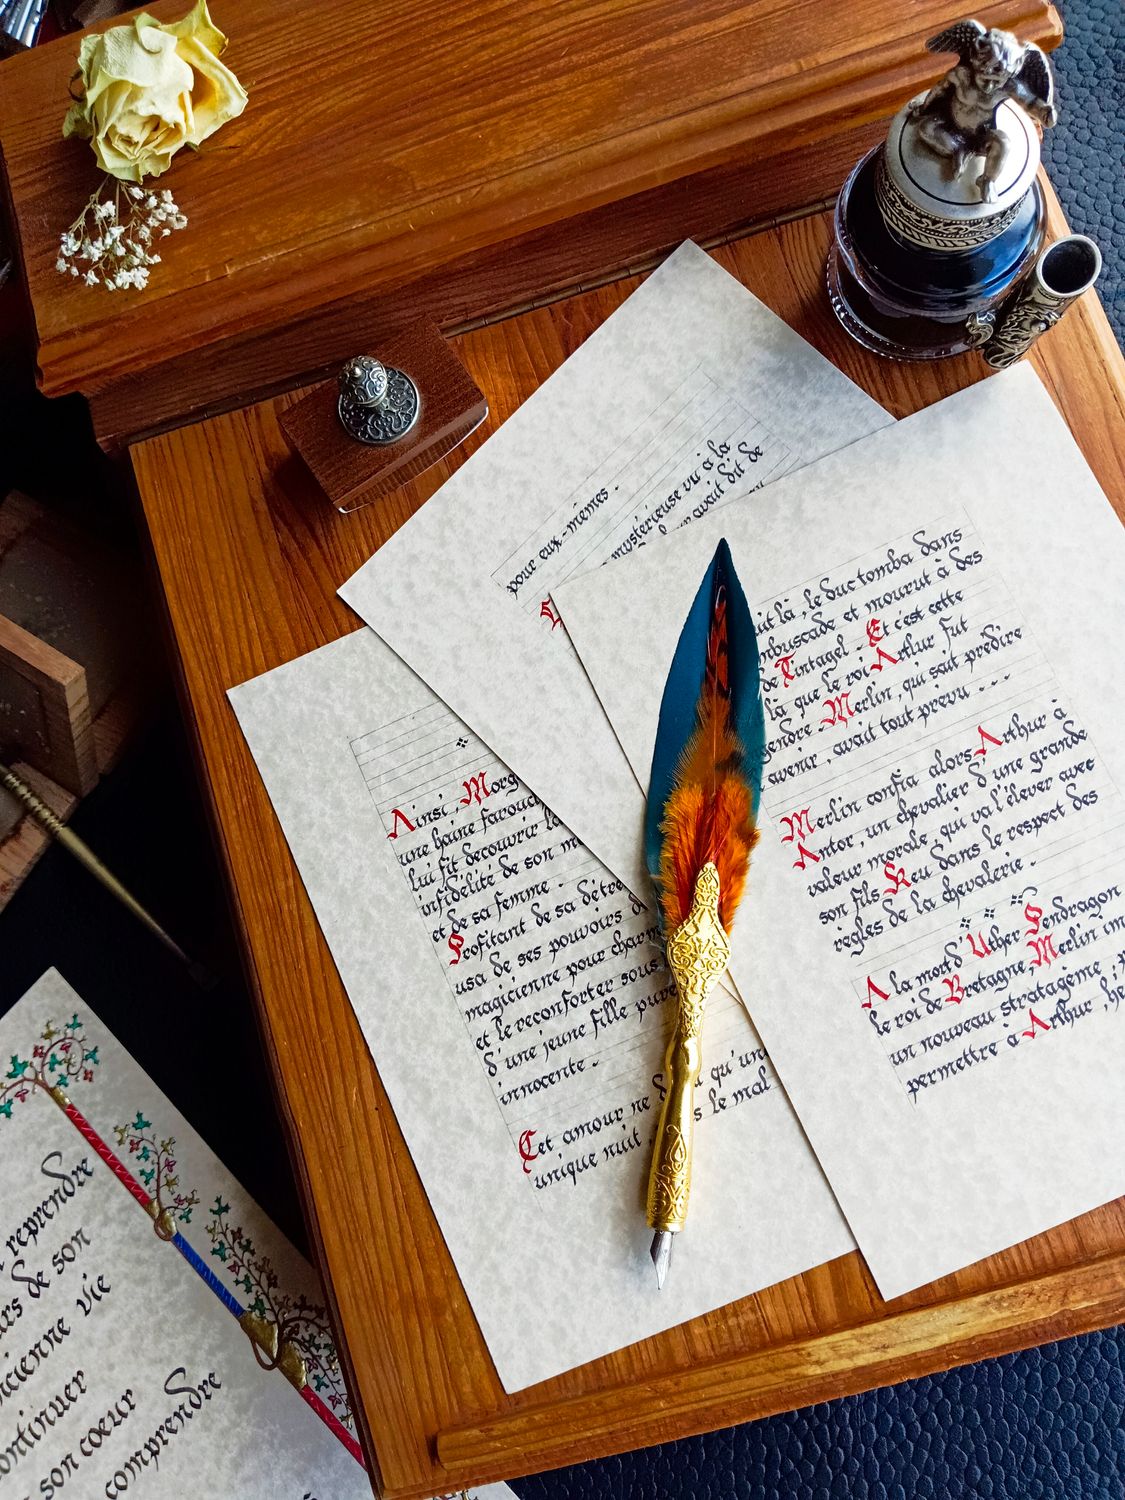 pour eux-mêmes.
mystérieuse vu à la
avait dit de
là, le duc tomba dans
embuscade et mourut à des
de Tintagel. Et c'est cette
là que le roi Arthur fut
gendré. Merlin, qui sait prédire
avenir, avait tout prévu...
Merlin confia alors Arthur à
Antor, un chevalier d'une grande
valeur morale, qui va l'élever avec
son fils Keu dans le respect des
règles de la chevalerie.
A la mort d'Uther Pendragon
le roi de Bretagne, Merlin im
un nouveau stratagème ;
permettre à Arthur,
Ainsi, Morg
une haine farouch
lui fit découvrir l
infidélité de son m
et de sa femme.
Profitant de sa détre
usa de ses pouvoirs d
magicienne pour charm
et le réconforter sous
d'une jeune fille pure
innocente.
Cet amour ne d qu'un
unique nuit, s le mal
reprendre
rs de son
ncienne vie
continuer
son coeur
comprendre